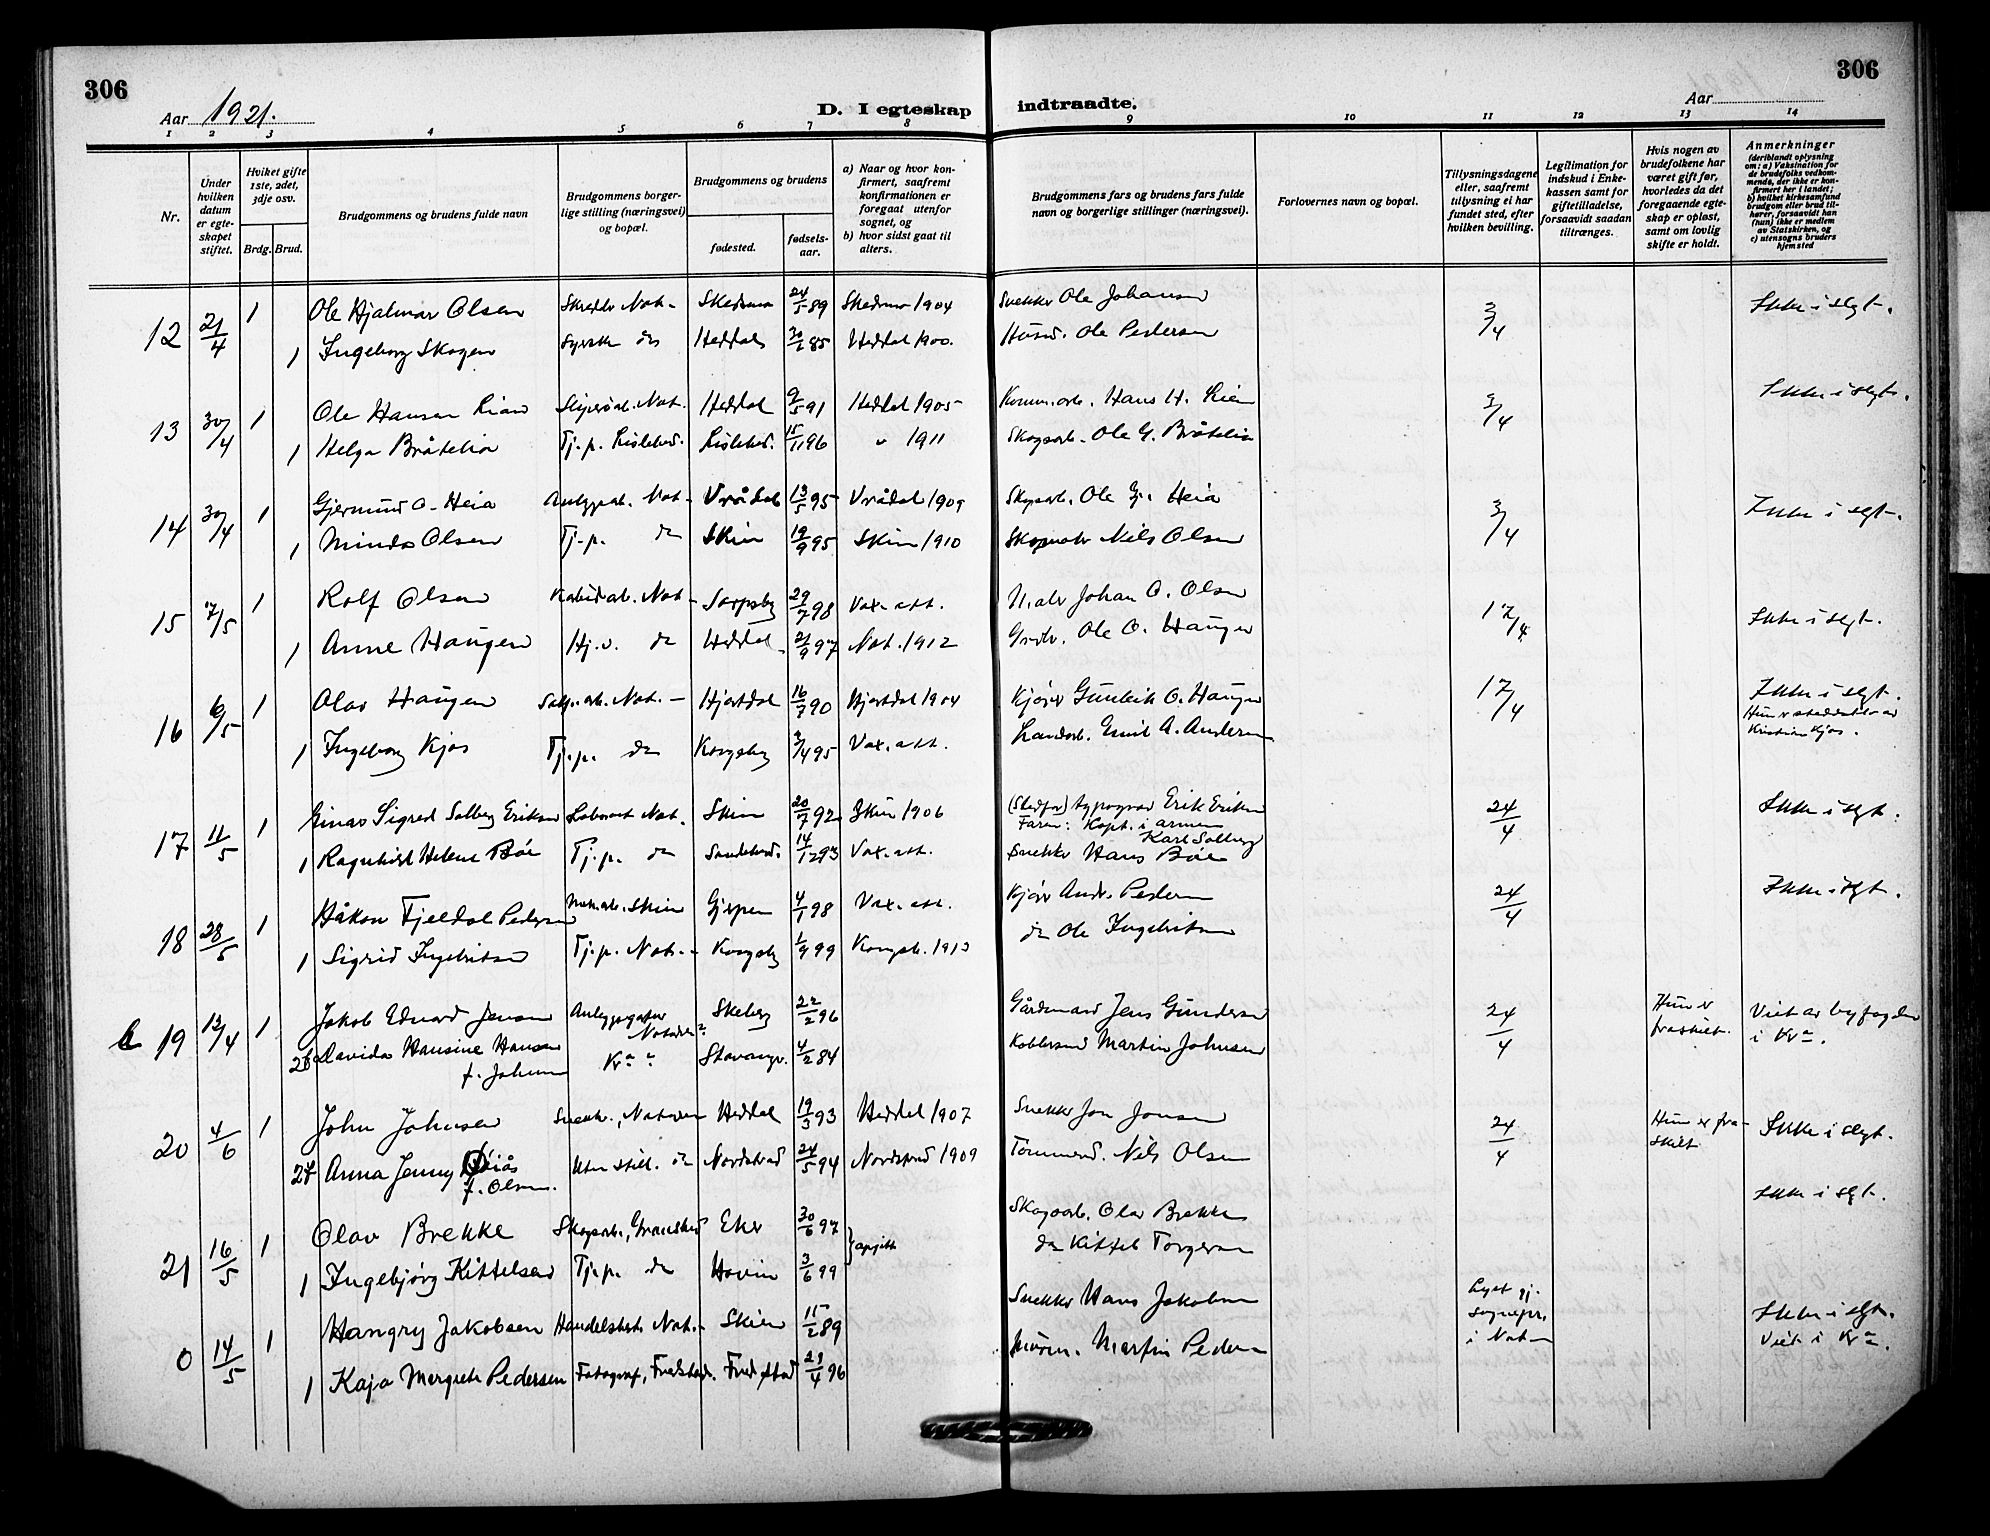 306
306
Aar 1921.
D. I egteskap indtraadte.
Aar
1 2 3 4 5 6 7 8 9 10 11 12 13 14
Nr.
Under hvilken datum er egteskapet stiftet.
Hviket gifte 1ste, 2det, 3dje osv.
Brdg. Brud.
Brudgommens og brudens fulde navn
Brudgommens borgerlige stilling (næringsvei) og bopæl.
Brudgommens og brudens
fødested.
fødselsaar.
a) Naar og hvor konfirmert, saafremt konfirmationen er foregaat utenfor sognet, og
b) hvor sidst gaat til alters.
Brudgommens fars og brudens fars fulde navn og borgerlige stillinger (næringsvei).
Forlovernes navn og bopæl.
Tillysningsdagene eller, saafremt tillysning ei har fundet sted, efter hvilken bevilling.
Legitimation for indskud i Enkekassen samt for giftetilladelse, forsaavidt saadan tiltrænges.
Hvis nogen av brudefolkene har været gift før, hvorledes da det foregaaende egteskap er opløst, samt om lovlig skifte er holdt.
Anmerkninger
(deriblandt oplysning om: a) Vaksination for de brudefolks vedkommende, der ikke er konfirmert her i landet; b) hvilket kirkesamfund brudgom eller brud tilhører, forsaavidt han (hun) ikke er medlem av Statskirken, og c) utensogns bruders hjemsted
12 21/4 1 Ole Hjalmar Olsen Skredder Not. Skedsmo 24/5 89 Skedsmo 1904 Snekker Ole Johansen 3/4 Ikke i slegt.
1 Ingeborg Skogen Syerske do Heddal 85 Heddal 1900. Husm. Ole Pedersen
13 30/4 1 Ole Hansen Lien Not. Heddal 9/5 91 Heddal 1905 Komm.arb. Hans H. Lien 3/4 Ikke i slegt.
1 Helga Bråtelia Tj.p. Lisleherad. Lisleherad. 15/11 96 " 1911 Skogsarb. Ole G. Bråtelia
14 30/4 1 Gjermund O. Heia Anlegsarb. Not. Vrådal 13/5 95 Vrådal 1909 Skogsarb. Ole Gj. Heia 3/4 Ikke i slegt.
1 Minda Olsen Tj.p. do Skien 19/9 95 Skien 1910 Nils Olsen
15 7/5 1 Rolf Olsen Karbidarb. Not. Sarpsborg 29/7 98 Vax. att. Johan O. Olsen 17/4 Ikke i slegt.
1 Anne Haugen Hj.v. do Heddal 21/9 97 Not. 1912 Ole O. Haugen
16 6/5 1 Olav Haugen Salp.arb. Not. Hjartdal 16/7 90 Hjartdal 1904 Kjører Gunleik O. Haugen 17/4 Ikke i slegt.
Hun er steddatter av
Kristian Kjos.
1 Ingeborg Kjos Tj.p. do Kongsberg 3/4 95 Vax. att. Emil A. Andersen
17 11/5 1 Einar Sigurd Solberg Eriksen Laborant Not. Skien 20/7 92 Skien 1906 (Stedfar) typograf Erik Eriksen 24/4 Ikke i slegt.
Faren: Kapt. i armeen
Karl Solberg
1 Ragnhild Helene Bøe Tj.p. do Sandeherad. 14/12 93 Vax. att. Snekker Hans Bøe
18 28/5 1 Håkon Fjeldal Pedersen Skien Gjerpen 4/1 98 Vax. att. Kjører Andr. Pedersen 24/4 Ikke i slegt.
1 Sigrid Ingebritsen Tj.p. Not. Kongsberg 1/9 99 Kongsb. 1913 do Ole Ingebritsen
19 12/4 1 Jakob Edvard Jensen Notodden Skeberg 22/2 96 Gårdmand Jens Gundersen 24/4 Hun er fraskilt. Viet av byfogden i Kra.
2 Davida Hansine Hansen
f. Johnsen Kra Stavanger. 4/2 84 Martin Johnsen
20 4/6 1 John Johnsen Snekk., Notodden Heddal 19/3 93 Heddal 1907 Snekker Jon Jonsen 24/4 Hun er fraskilt Ikke i slegt.
2 Anna Jenny
f. Olsen. Uten still. do Nordstrand 24/5 94 Nordstrand 1909 Nils Olsen
21 16/5 1 Olav Brekke Skogsarb., Gransherad Eker 30/6 97 } opgitt Skogsarb. Olav Brekke Ikke i slegt.
1 Ingebjørg Kittelsen Tj.p. do Hovin 3/6 99 do Kittel Torgersen
0 14/5 1 Hangry Jakobsen Handelsbest. Not. Skien 15/2 89 Snekker Hans Jakobsen Lyst gj. sognepr. i Not. Ikke i slegt.
Viet i Kra.
1 Kaja Margrete Pedersen Fotograf, Fredrstad. Fredrstad 21/4 96 Martin Pedersen